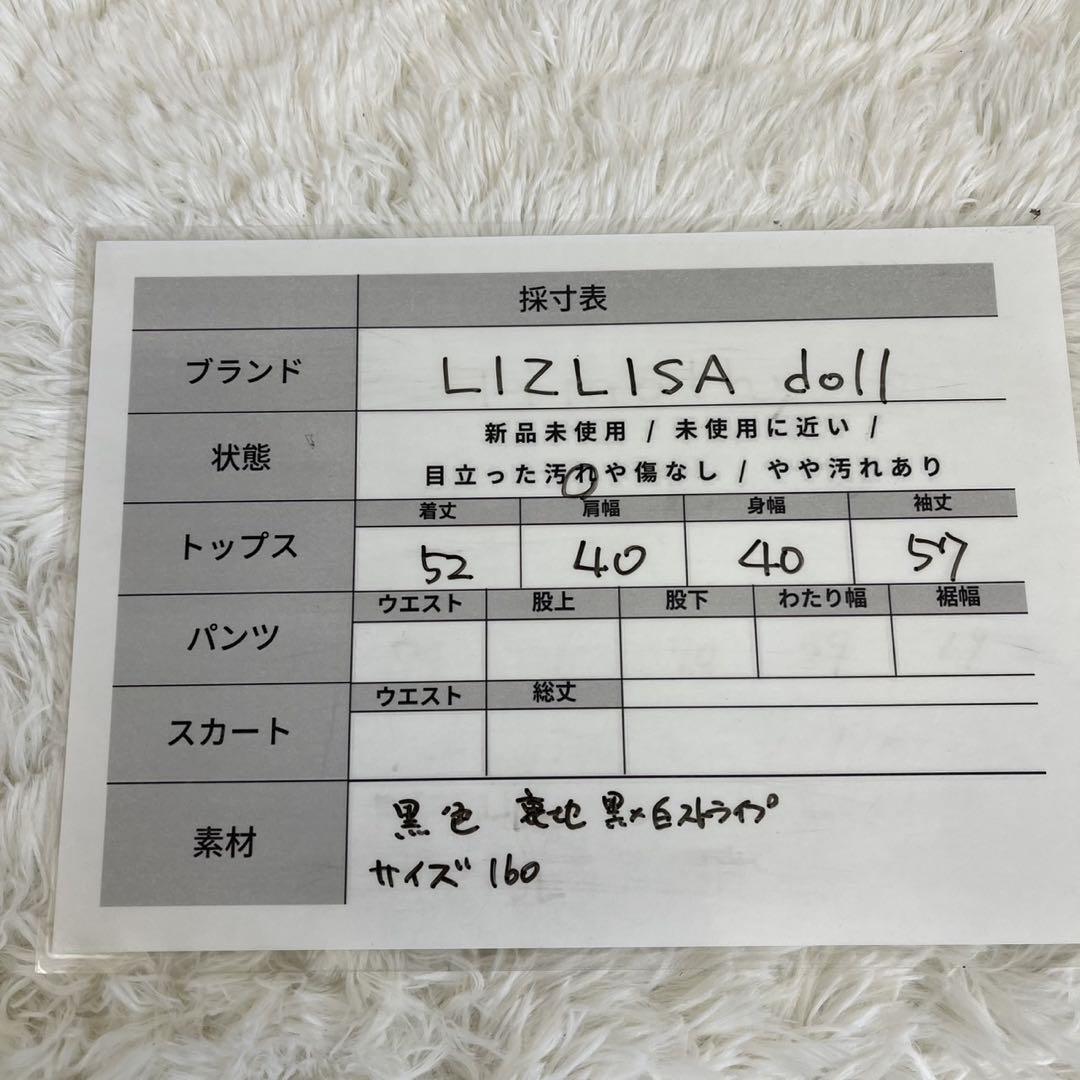 採寸表
ブランド LIZLISA doll
状態 新品未使用 / 未使用に近い /
目立った汚れや傷なし / やや汚れあり
トップス 着丈 肩幅 身幅 袖丈
52 40 40 57
パンツ ウエスト 股上 股下 わたり幅 裾幅
スカート ウエスト 総丈
素材 黒色 裏地 黒×白ストライプ
サイズ 160